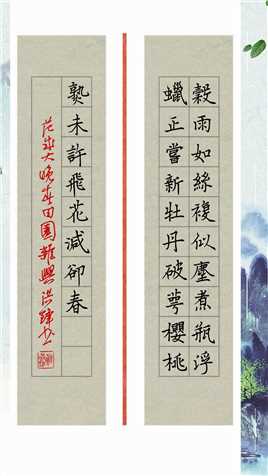 穀雨如絲複似塵煮瓶浮
蠟正當新牡丹破萼櫻桃
熟未許飛花減卻春
范成大晚春田園雜興洪鐸书